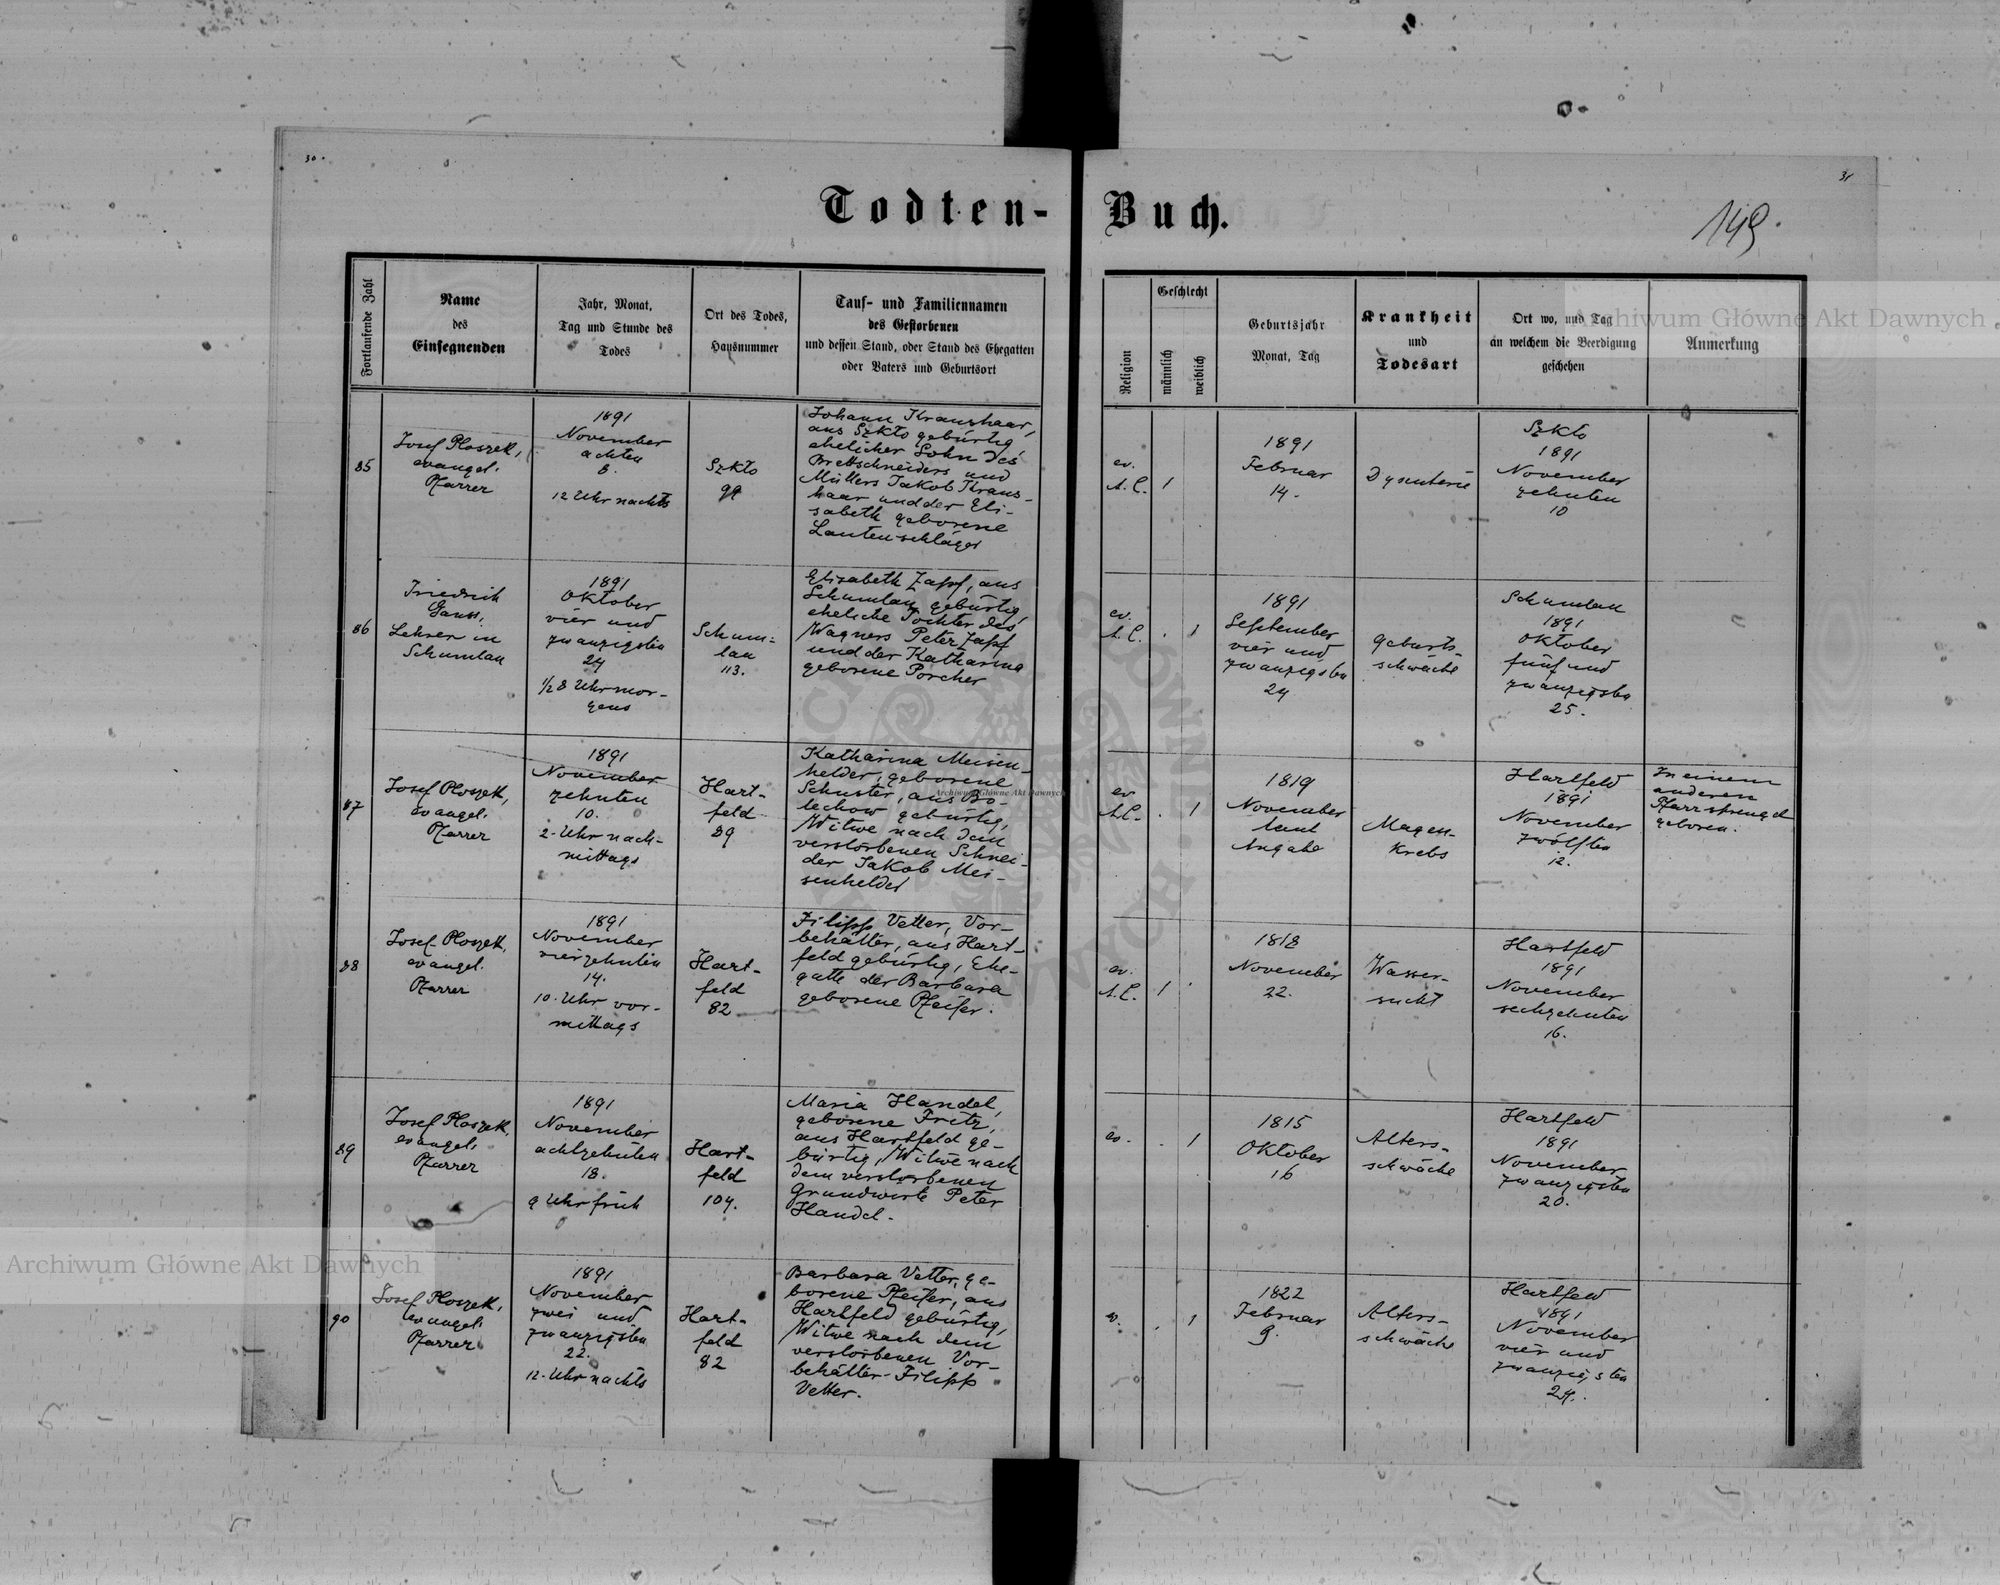 30.
31
Todten-Buch.
149.
Fortlaufende Zahl
Name
des
Einsegnenden
Jahr, Monat,
Tag und Stunde des
Todes
Ort des Todes,
Hausnummer
Tauf- und Familiennamen
des Gestorbenen
und dessen Stand, oder Stand des Ehegatten
oder Vaters und Geburtsort
Religion
Geschlecht
männlich
weiblich
Geburtsjahr
Monat, Tag
Krankheit
und
Todesart
Ort wo, und Tag
an welchem die Beerdigung
geschehen
Anmerkung
85
Josef Ploszek,
evangel.
Pfarrer
1891
November
achten
8.
12 Uhr nachts
Szkło
94
Johann Kraushaar,
aus Szkło gebürtig,
ehelicher Sohn des
Brettschneiders und
Müllers Jakob Kraus-
haar und der Eli-
sabeth geborene
Lautenschläger
ev.
A.C.
1
1891
Februar
14.
Dysenterie
Szkło
1891
November
zehnten
10
86
Friedrich
Gauss,
Lehrer in
Schumlau
1891
Oktober
vier und
zwanzigsten
24
1/2 8 Uhr mor-
gens
Schum-
lau
113.
Elisabeth Zapf, aus
Schumlau gebürtig,
eheliche Tochter des
Wagners Peter Zapf
und der Katharina
geborene Porcher
ev.
A.C.
.
1
1891
September
vier und
zwanzigsten
24
Geburts-
schwäche
Schumlau
1891
Oktober
fünf und
zwanzigsten
25.
87
Josef Ploszek,
evangel.
Pfarrer
1891
November
zehnten
10.
2 Uhr nach-
mittags
Hart-
feld
89
Katharina Meisen-
helder, geborene
Schuster, aus Bo-
lechow gebürtig,
Witwe nach dem
verstorbenen Schnei-
der Jakob Mei-
senhelder
ev
A.C.
.
1
1819
November
laut
Angabe
Magen-
Krebs
Hartfeld
1891
November
zwölften
12.
In einem
anderen
Pfarrsprengel
geboren.
88
Josef Ploszek,
evangel.
Pfarrer
1891
November
vierzehnten
14.
10 Uhr vor-
mittags
Hart-
feld
82
Filipp Vetter, Vor-
behälter, aus Hart-
feld gebürtig, Ehe-
gatte der Barbara
geborene Pfeifer.
ev.
A.C.
1
.
1818
November
22.
Wasser-
sucht
Hartfeld
1891
November
sechzehnten
16.
89
Josef Ploszek,
evangel.
Pfarrer
1891
November
achtzehnten
18.
9 Uhr früh
Hart-
feld
104.
Maria Handel,
geborene Fritz,
aus Hartfeld ge-
bürtig, Witwe nach
dem verstorbenen
Grundwirth Peter
Handel.
ev.
.
1
1815
Oktober
16
Alters-
schwäche
Hartfeld
1891
November
zwanzigsten
20.
90
Josef Ploszek,
evangel.
Pfarrer
1891
November
zwei und
zwanzigsten
22.
12 Uhr nachts
Hart-
feld
82
Barbara Vetter, ge-
borene Pfeifer, aus
Hartfeld gebürtig,
Witwe nach dem
verstorbenen Vor-
behälter Filipp
Vetter.
ev.
.
1
1822
Februar
9.
Alters-
schwäche
Hartfeld
1891
November
vier und
zwanzigsten
24.
Archiwum Główne Akt Dawnych
Archiwum Główne Akt Dawnych
Archiwum Główne Akt Dawnych